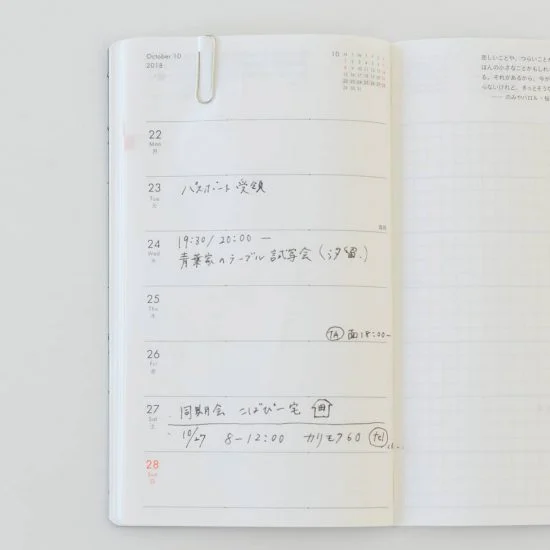 October 10
2018
10
22
Mon
月
23
Tue
火
パスポート受領
24
Wed
水
19:30/20:00 —
青葉家のテーブル 試写会(汐留)
25
Thu
木
26
Fri
金
面 18:00—
27
Sat
土
同期会 こばぴー宅
10/27 8-12:00 カリモク60 tel
28
Sun
日
悲しいことや、つらいことが
ほんの小さなことかもしれ
る。それがあるから、今が
らないけれど、きっとそうだ